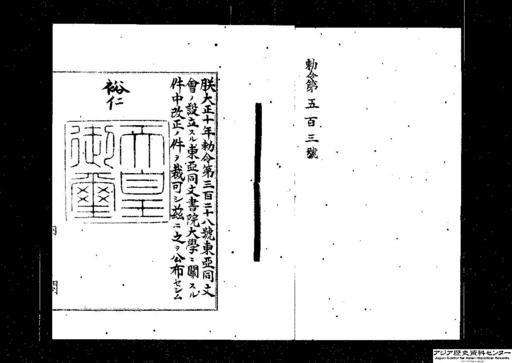 勅令第五百三號
朕大正十年勅令第三百二十八號東亞同文
會ノ設立スル東亞同文書院大學ニ關スル
件中改正ノ件ヲ裁可シ茲ニ之ヲ公布セシム
裕仁
天皇
御璽
内閣
アジア歴史資料センター
Japan Center for Asian Historical Records